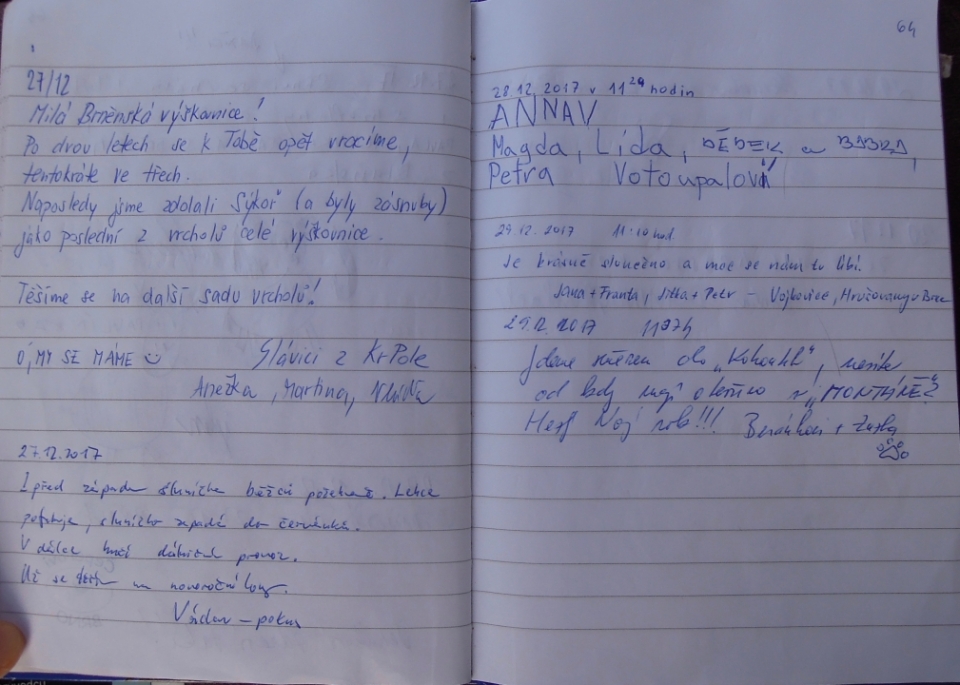 27/12
Milá Brněnská výškovnice!
Po dvou letech se k Tobě opět vracíme,
tentokráte ve třech.
Naposledy jsme zdolali Sýkoř (a byly zásnuby)
jako poslední z vrcholů celé výškovnice.
Těšíme se na další sadu vrcholů!
Ó, MY SE MÁME
Slávici z KrPole
Anežka, Martina,
27.12.2017
I před západem sluníčka běžící
, sluníčko zapadá do červánků.
V dálce hučí dálniční provoz.
Už se těším na novoroční
64
28.12.2017 v 11 29 hodin
ANNA V
Magda, Lída, DĚDEK a BABKA,
Petra Votoupalová
29.12.2017 11.10 hod.
je krásně slunečno a moc se nám tu líbí.
Jana + Franta, Jitka + Petr - Vojkovice, Hrušovany u Brna
29.12.2017
Jdeme okolo "Kohoutek",
od tady mají v "MONTÁNĚ"?
Hezký Nový rok!!!